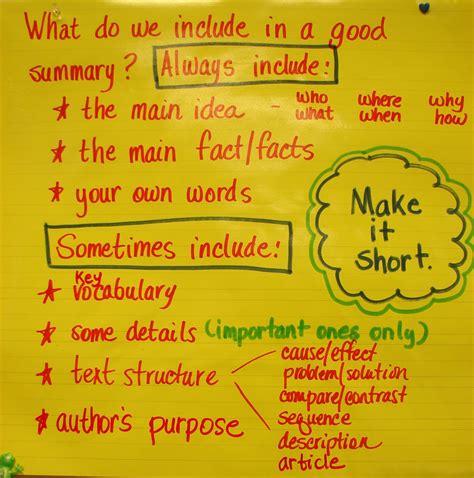 What do we include in a good
summary? Always include:
★ the main idea - who where why
what when how
★ the main fact/facts
★ your own words
Make
it
short.
Sometimes include:
★ Key vocabulary
★ some details (important ones only)
★ text structure
cause/effect
problem/solution
compare/contrast
sequence
description
article
★ author's purpose